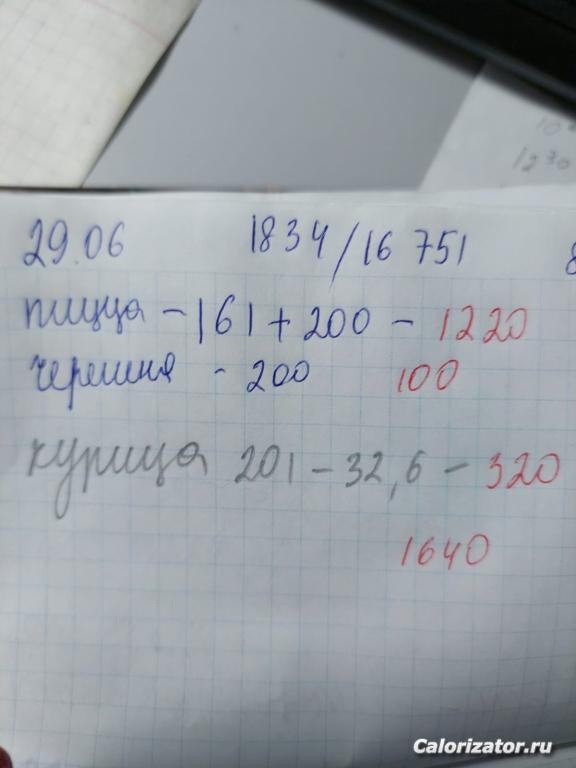 10
12 30
29.06 1834/16 751 8
пицца - 161 + 200 - 1220
черешня - 200 100
курица 201 - 32,6 - 320
1640
Calorizator.ru